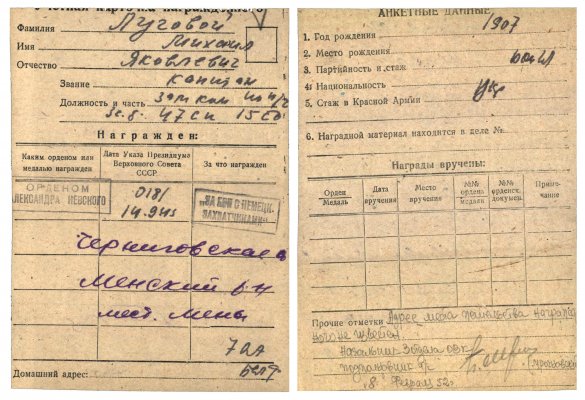 Учетная карточка награжденного
Фамилия Луговой
Имя Михаил
Отчество Яковлевич
Звание капитан
Должность и часть зам ком по п/ч
47 сп 15 сд
Награжден:
Каким орденом или медалью награжден
Дата Указа Президиума Верховного Совета СССР
За что награжден
ОРДЕНОМ
АЛЕКСАНДРА НЕВСКОГО
018/
14.945
„ЗА БОИ С НЕМЕЦК.
ЗАХВАТЧИКАМИ“
Черниговская о
Менский р-н
мест. Мена
Домашний адрес:
АНКЕТНЫЕ ДАННЫЕ
1. Год рождения 1907
2. Место рождения
3. Партийность и стаж
4. Национальность укр
5. Стаж в Красной Армии
6. Наградной материал находится в деле №
Награды вручены:
Орден
Медаль
Дата вручения
Место вручения
№№ ордена
медали
№№ орденск. докумен.
Примечание
Прочие отметки Адрес места жительства награжден
ного не известен.
Начальник 3 отдела ОВК
подполковник
8 февраля 52г.